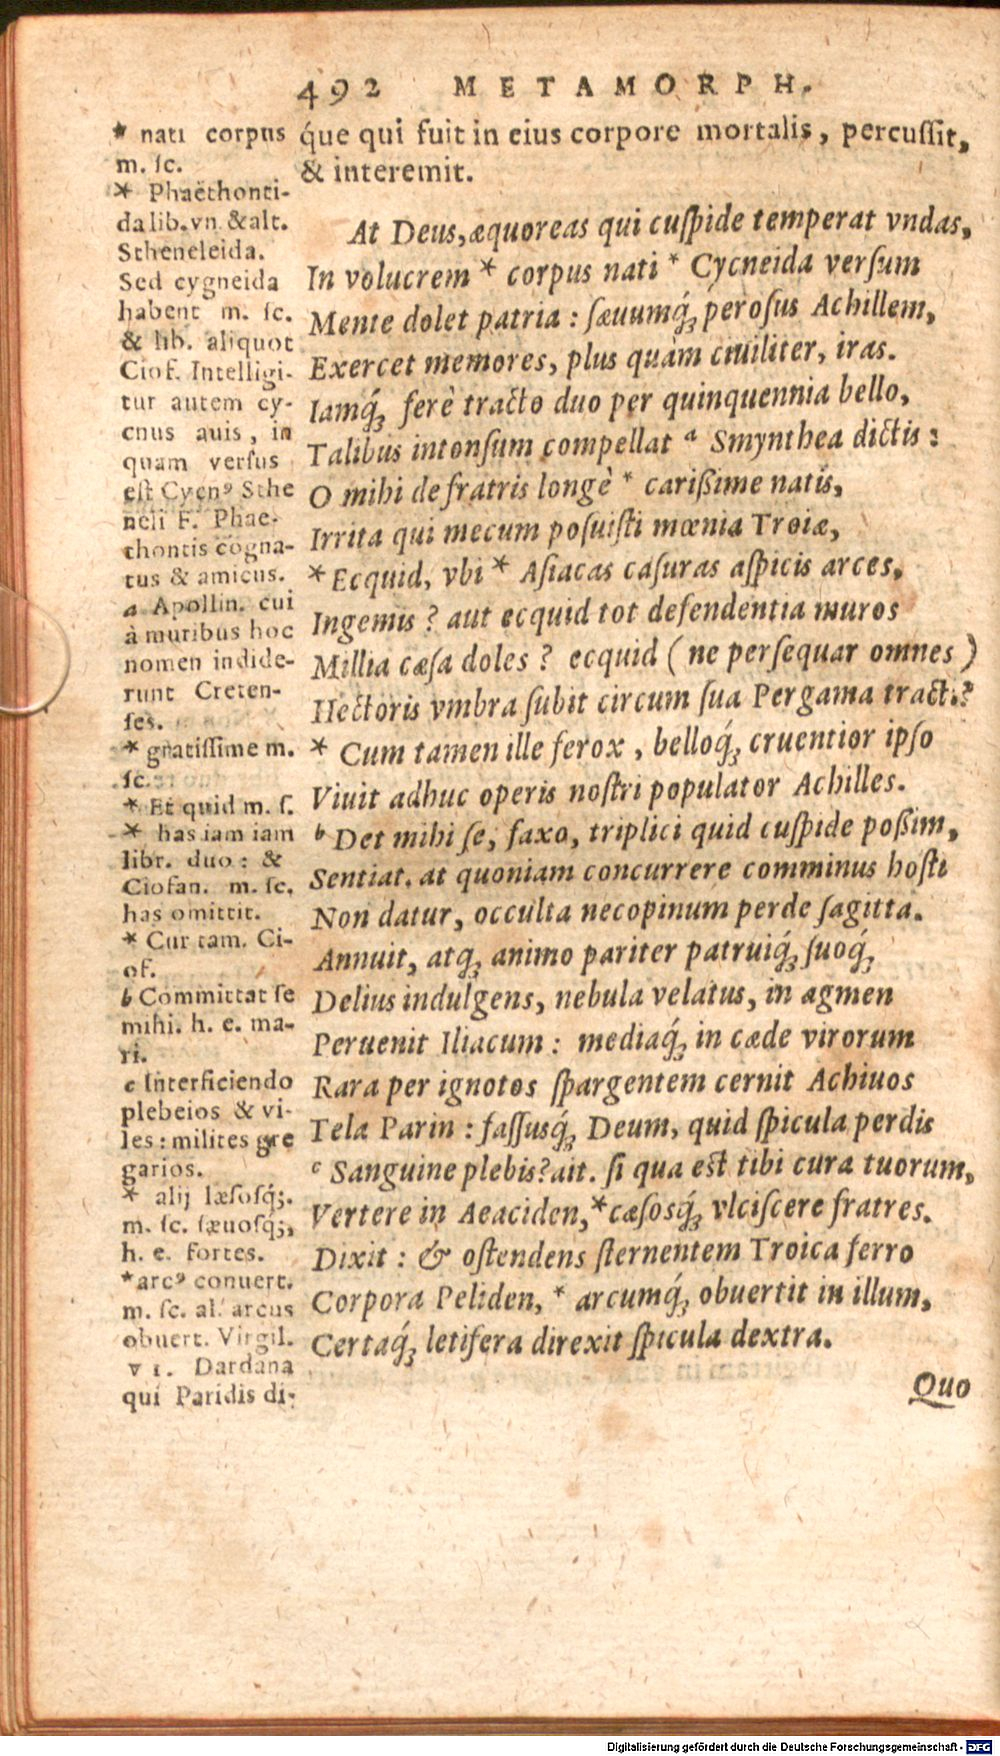 492 METAMORPH.
q́ue qui fuit in eius corpore mortalis, percuſſit,
& interemit.
At Deus, æquoreas qui cuſpide temperat vndas,
In volucrem * corpus nati * Cycneida verſum
Mente dolet patria : ſæuumq́; peroſus Achillem,
Exercet memores, plus quàm ciuiliter, iras.
Iamq́; ferè tracto duo per quinquennia bello,
Talibus intonſum compellat a Smynthea dictis :
O mihi de fratris longè * carißime natis,
Irrita qui mecum poſuiſti mœnia Troiæ,
* Ecquid, vbi * Aſiacas caſuras aſpicis arces,
Ingemis ? aut ecquid tot defendentia muros
Millia cæſa doles ? ecquid ( ne perſequar omnes )
Hectoris vmbra ſubit circum ſua Pergama tracti?
* Cum tamen ille ferox, belloq́; cruentior ipſo
Viuit adhuc operis noſtri populator Achilles.
b Det mihi ſe, faxo, triplici quid cuſpide poßim,
Sentiat. at quoniam concurrere comminus hoſti
Non datur, occulta necopinum perde ſagitta.
Annuit, atq; animo pariter patruiq́; ſuoq́;
Delius indulgens, nebula velatus, in agmen
Peruenit Iliacum : mediaq́; in cæde virorum
Rara per ignotos ſpargentem cernit Achiuos
Tela Parin : faſſusq́; Deum, quid ſpicula perdis
c Sanguine plebis? ait. ſi qua eſt tibi cura tuorum,
Vertere in Aeaciden, * cæſosq́; vlciſcere fratres.
Dixit : & oſtendens ſternentem Troica ferro
Corpora Peliden, * arcumq́; obuertit in illum,
Certaq́; letifera direxit ſpicula dextra.
Quo
* nati corpus
m. ſc.
* Phaëthonti-
da lib. vn. & alt.
Stheneleida.
Sed cygneida
habent m. ſc.
& lib. aliquot
Ciof. Intelligi-
tur autem cy-
cnus auis, in
quam verſus
eſt Cycnꝰ Sthe
neli F. Phae-
thontis cogna-
tus & amicus.
a Apollin. cui
à muribus hoc
nomen indide-
runt Creten-
ſes.
* gratiſſime m.
ſc.
* Et quid m. ſ.
* has iam iam
libr. duo : &
Ciofan. m. ſc.
has omittit.
* Cur tam. Ci-
of.
b Committat ſe
mihi. h. e. ma-
ri.
c Interficiendo
plebeios & vi-
les : milites gre
garios.
* alij læſoſq́;.
m. ſc. ſæuoſq́;,
h. e. fortes.
* arcꝰ conuert.
m. ſc. al. arcus
obuert. Virgil.
VI. Dardana
qui Paridis di-
Digitalisierung gefördert durch die Deutsche Forschungsgemeinschaft - DFG